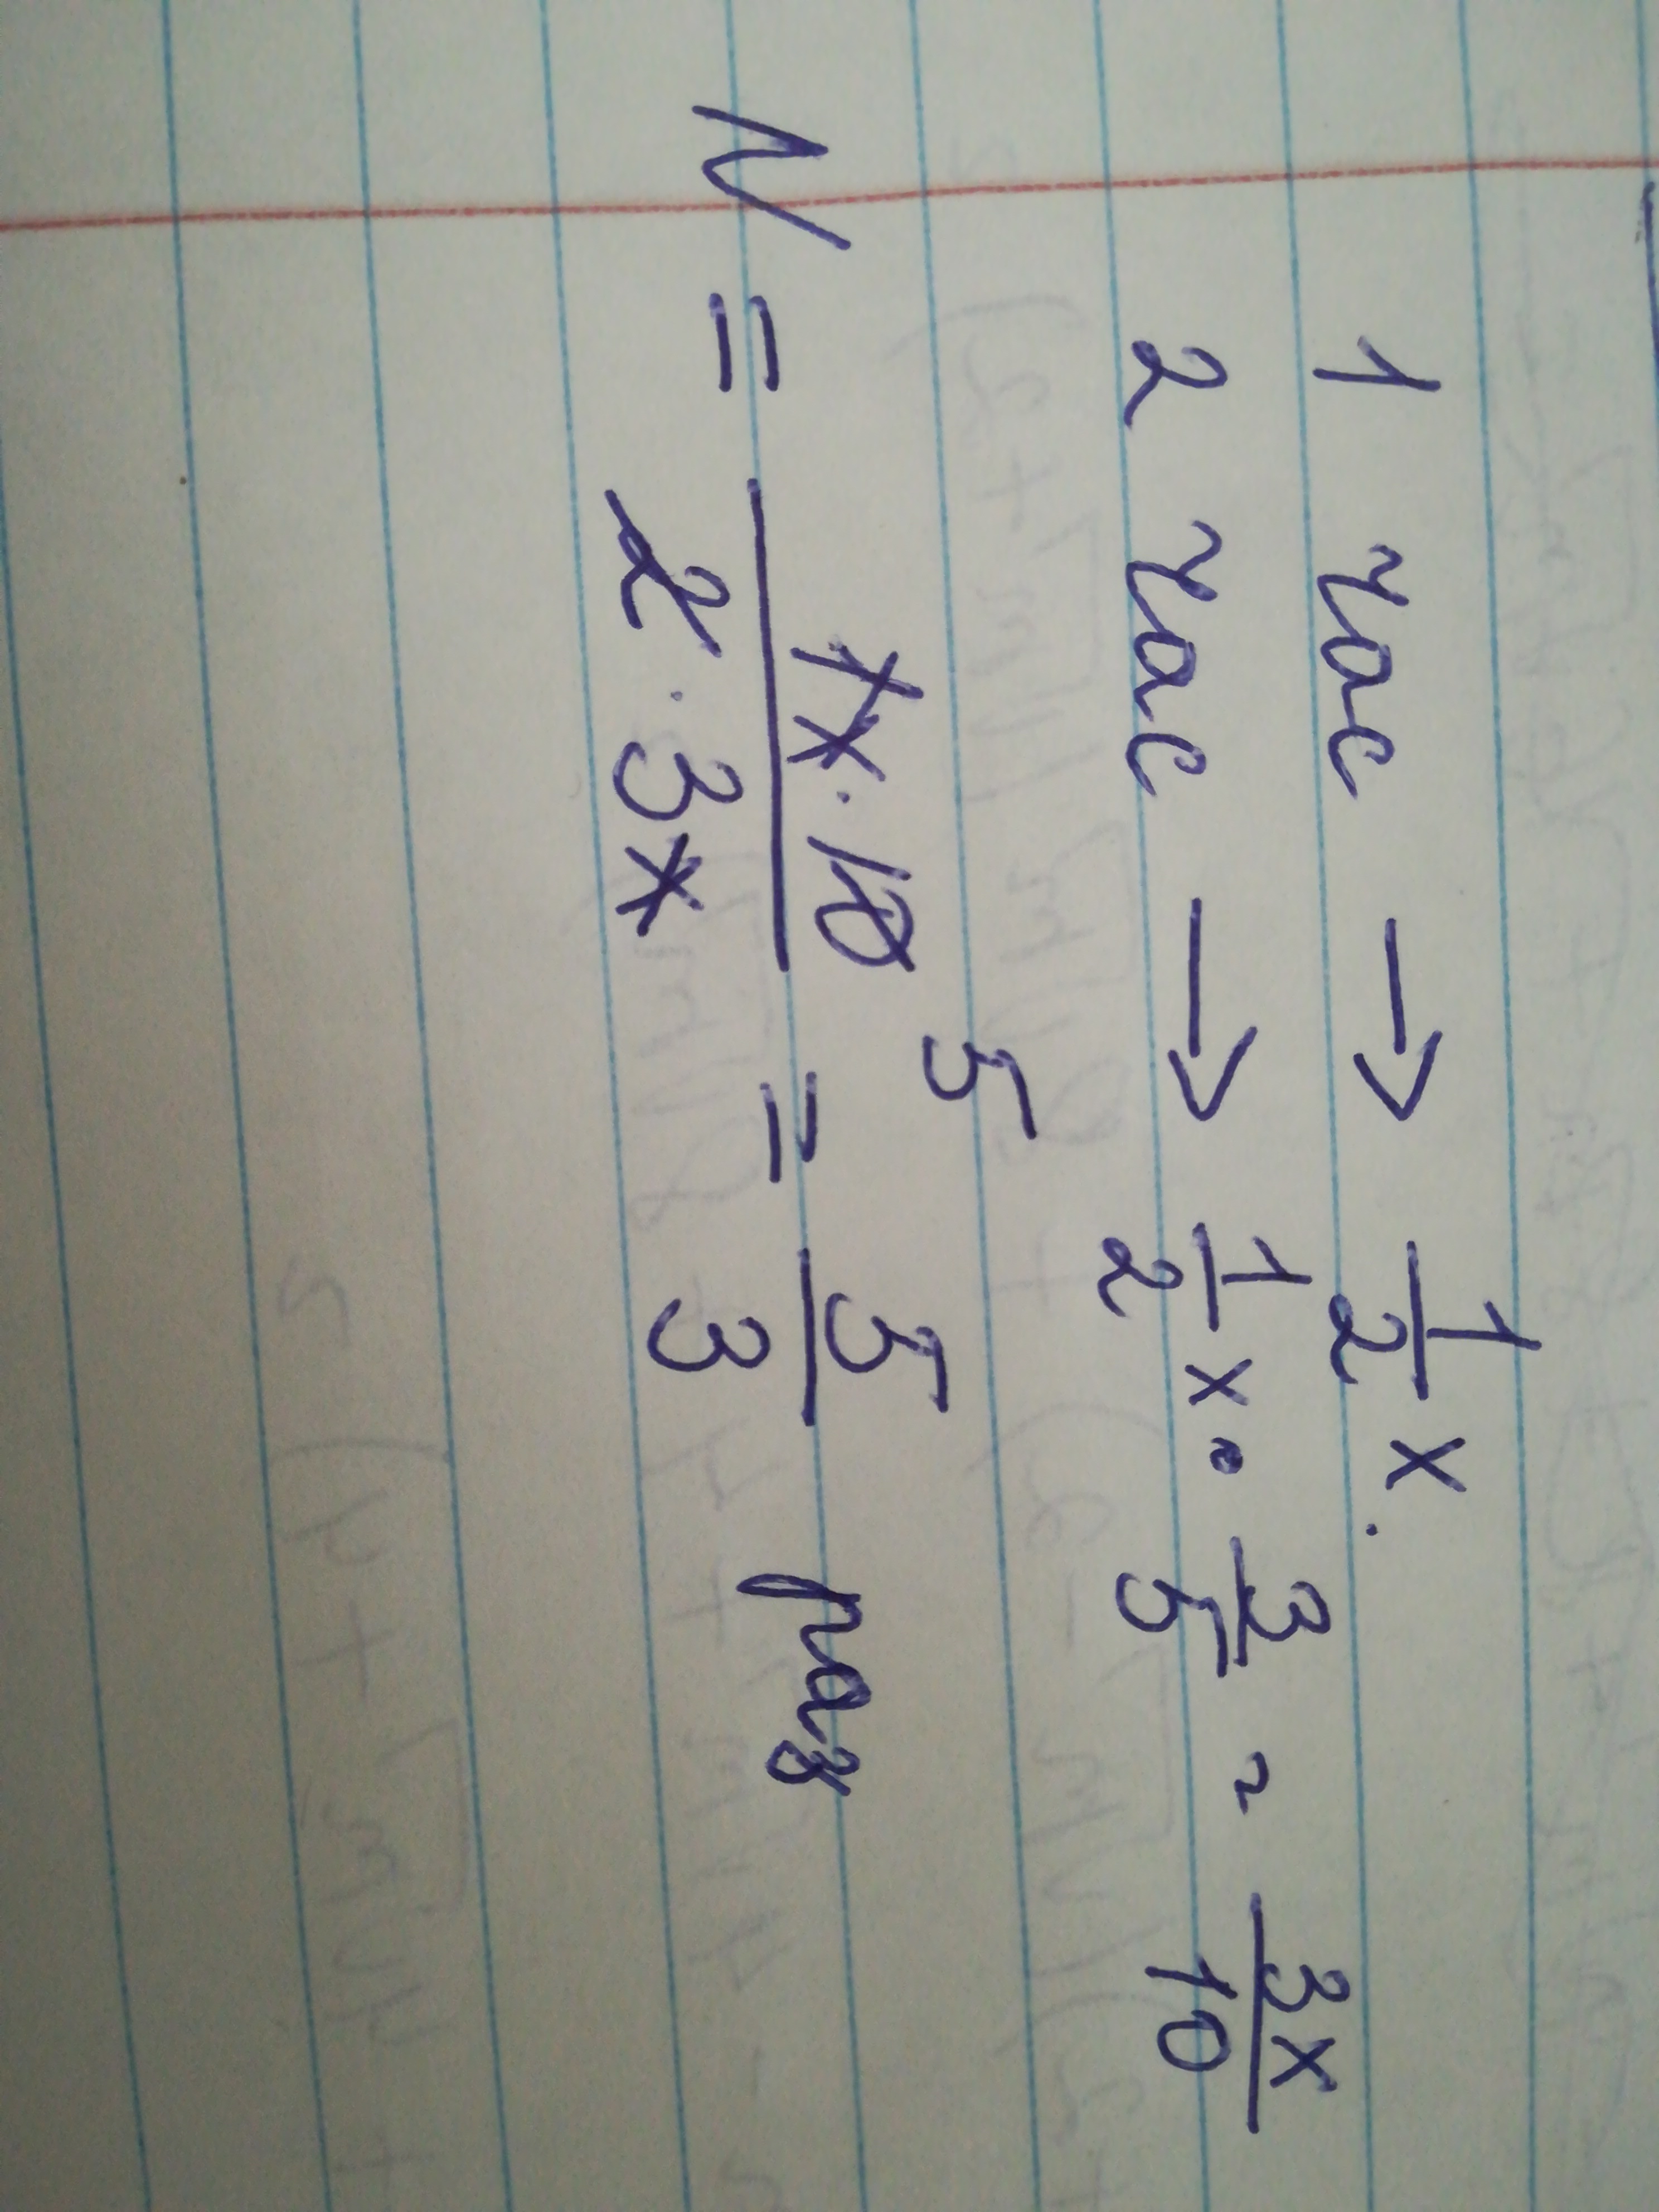 1 час → 1/2 x.
2 час → 1/2 x · 3/5 = 3x/10
N = 1x · 10 5 / 2 · 3x = 5/3 раз